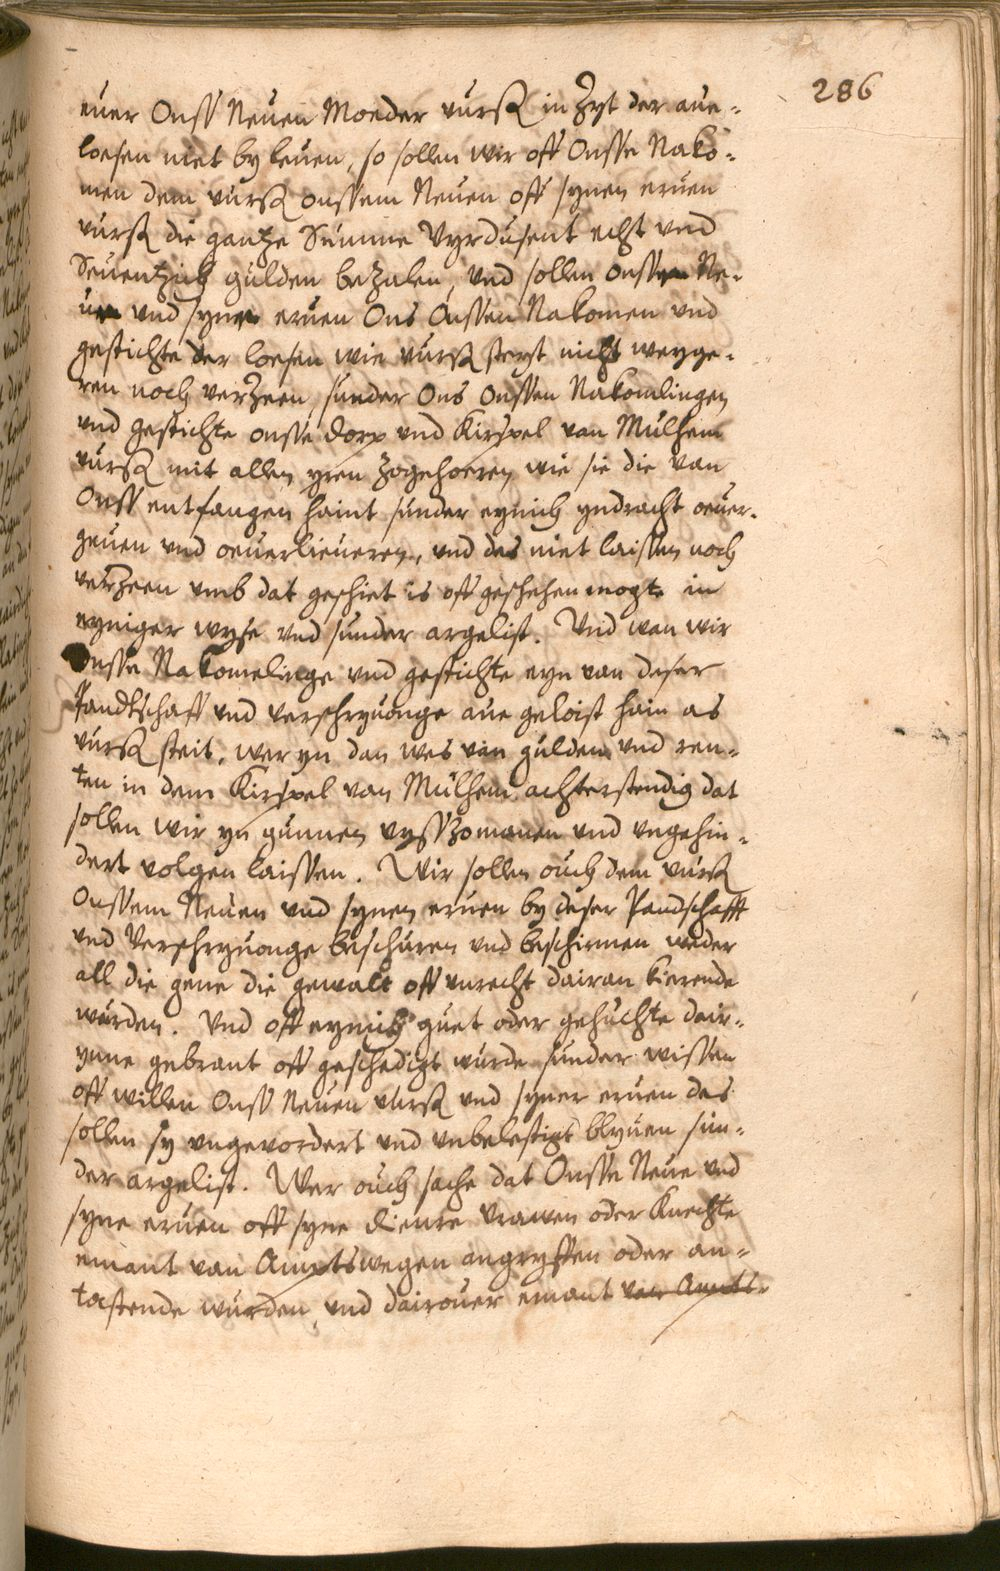 286
euer Onss Neuen Moeder vurß in Zyt der aue-
loesen niet by leuen, so sollen wir off Onsse Nako-
men dem vurß onssem Neuen off synen eruen
vurß die gantze Summe Vyrdusent acht vnd
Seuentzich gulden bezalen, vnd sollen onssen Ne-
uen vnd synen eruen Ons Onssen Nakomen vnd
gestichte der loesen wie vurß steyt nicht weyge-
ren noch verzeen, sunder Ons onssen Nakomlingen
vnd gestichte onsse dorp vnd Kirspel van Mülhem
vurß mit allen yren zogehoeren, wie sie die van
Onss entfangen haint sunder eynich yndracht oeuer-
geuen vnd oeuerlieueren, vnd des niet laissen noch
verzeen vmb dat geschiet is off geschehen mogte in
eyniger wyse vnd sunder argelist. Vnd wan wir
Onsse Nakomelinge vnd gestichte eyn van deser
Pandtschaff vnd verschryuonge aue geloist hain as
vurß steit, wer yn dan wes van gulden vnd ren-
ten in dem Kirspel van Mülhem achterstendig dat
sollen wir yn gunnen vysszomanen vnd vngehin-
dert volgen laissen. Wir sollen ouch dem vurß
Onssem Neuen vnd synen eruen by deser Pandschafft
vnd Verschryuonge beschuren vnd beschirmen weder
all die gene die gewalt off vnrecht dairan kierende
wurden. Vnd off eynich guet oder gehuchte dair-
ynne gebrant off geschedigt wurde sunder wissen
off willen Onss Neuen vurß vnd syner eruen des
sollen sy vngevordert vnd vnbelestigt blyuen sun-
der argelist. Wer ouch sache dat Onsse Neue vnd
syne eruen off syne dienre vrawen oder Knechte
emant van Amptswegen angryffen oder an-
tastende wurden, vnd dairouer emant van Ampts-